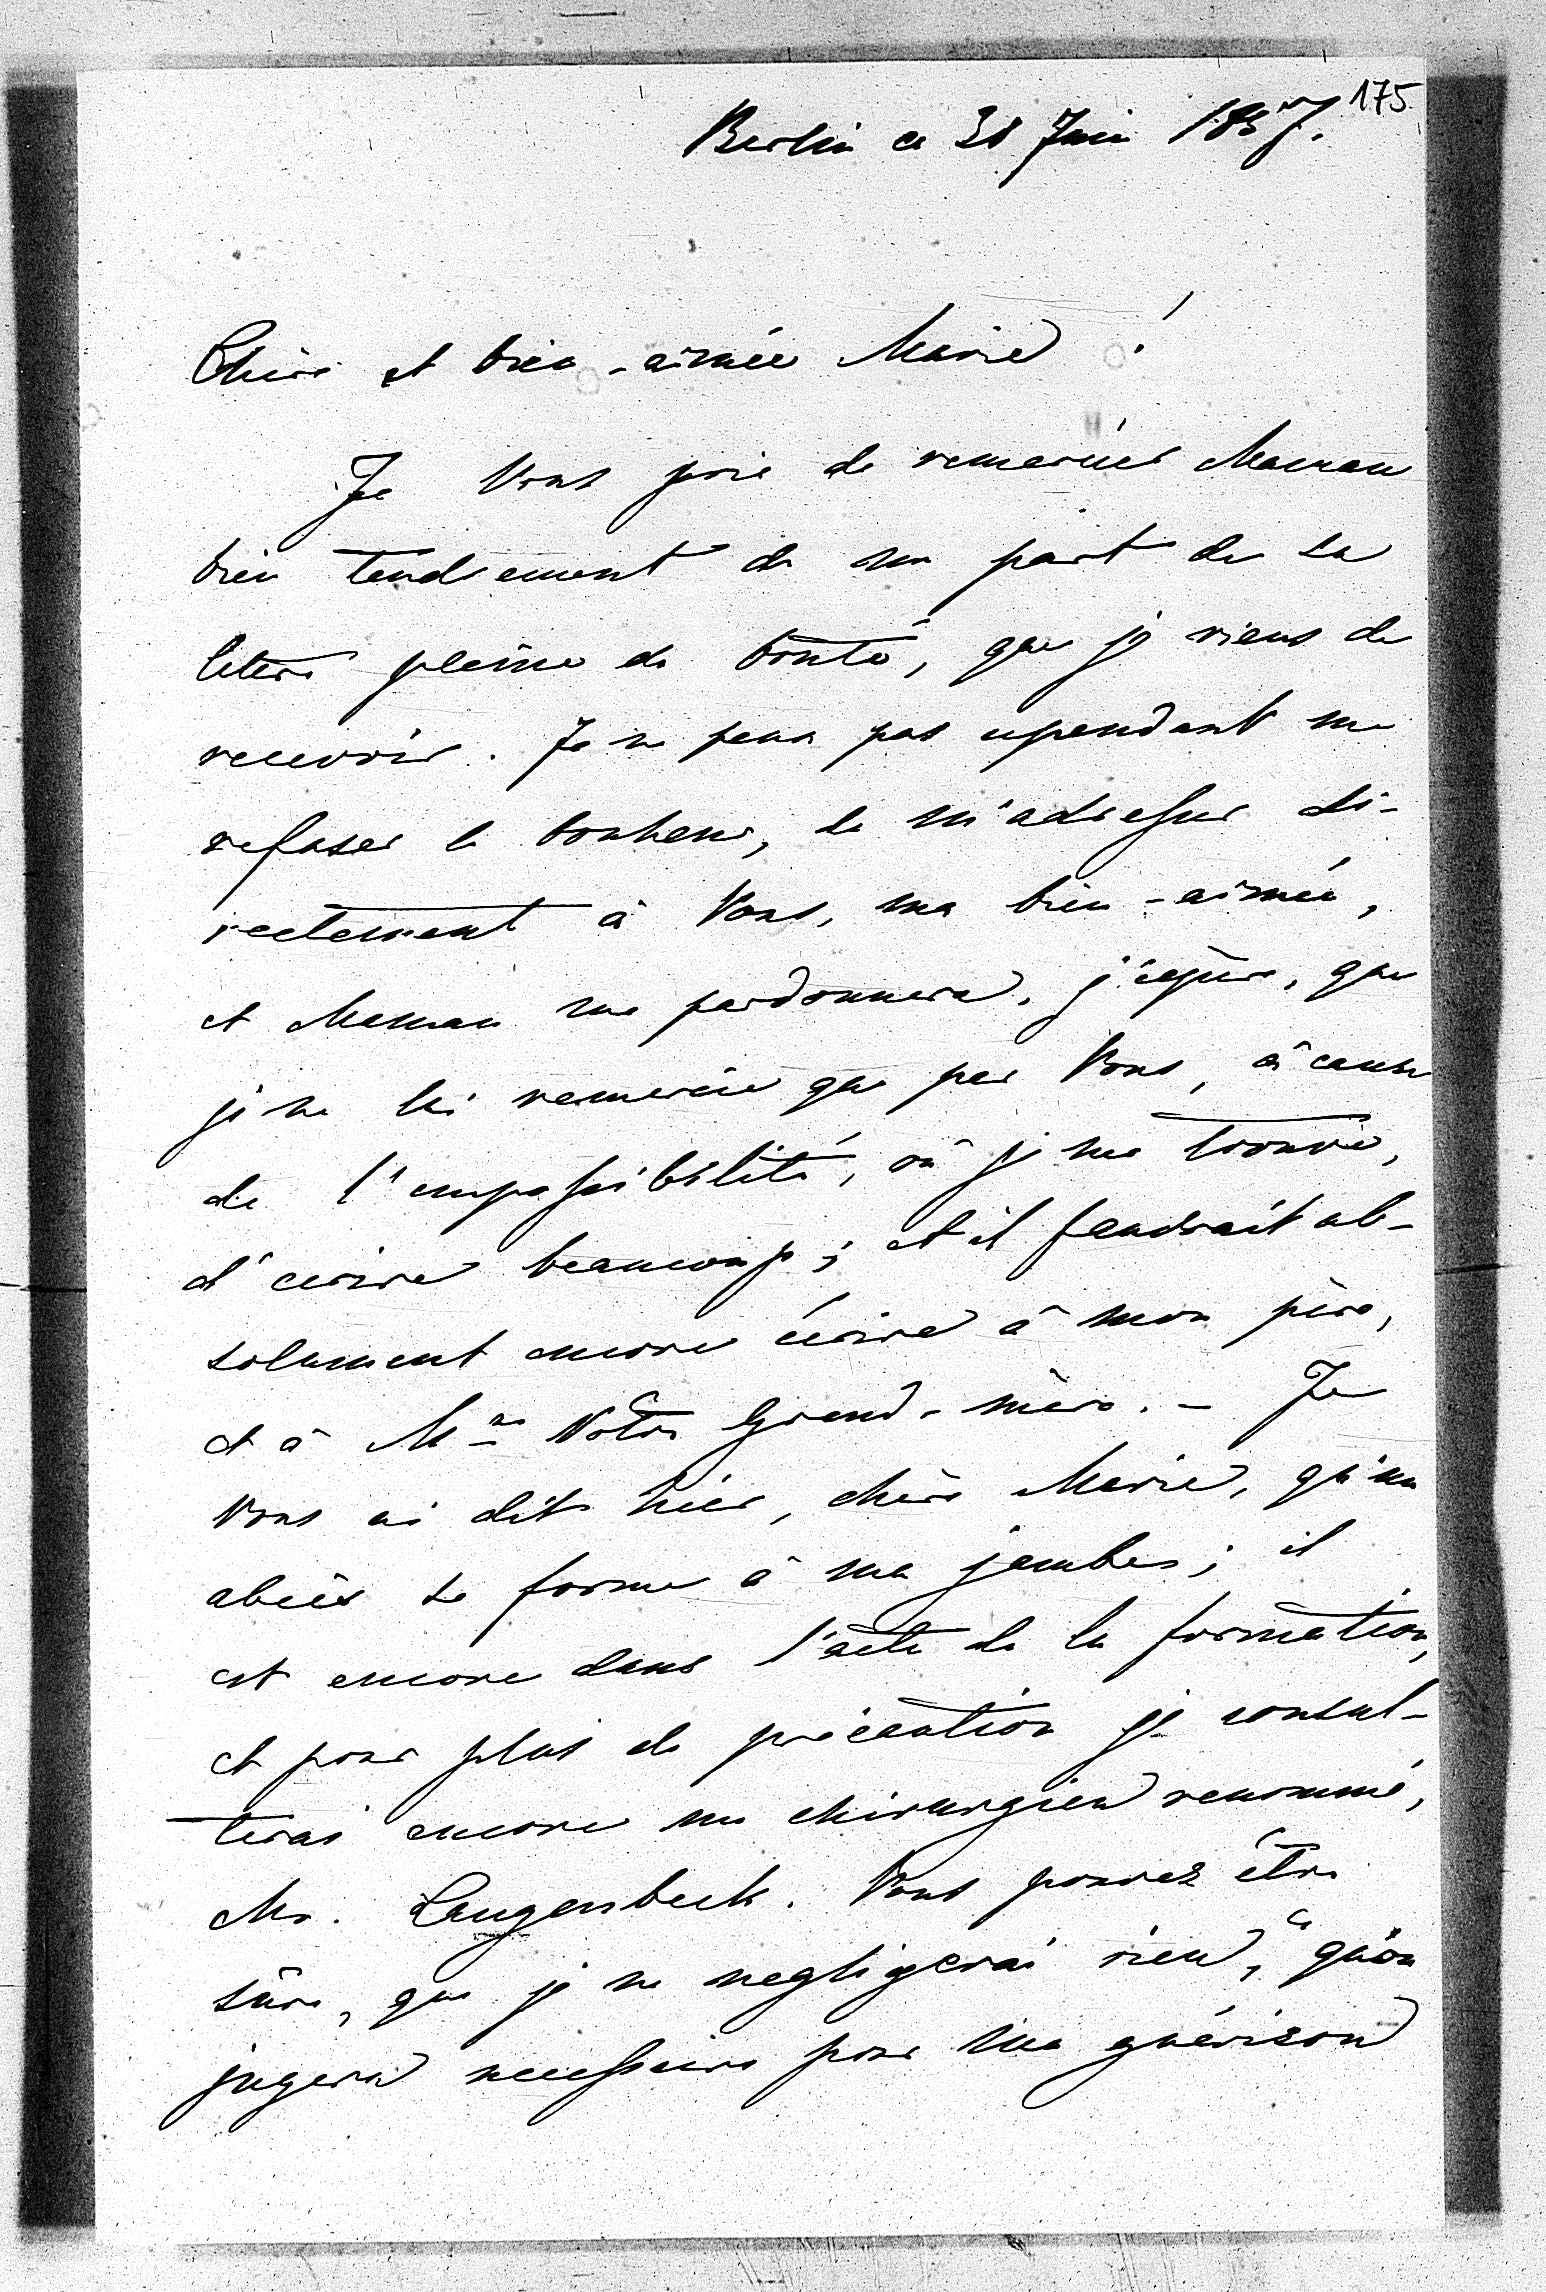 175
Berlin ce 30 Juin 1857.
Chère et bien-aimée Marie!
Je Vous prie de remercier Maman
bien tendrement de ma part de sa
lettre pleine de bonté, que je viens de
recevoir. Je ne peux pas cependant me
refuser le bonheur, de m'adresser di-
rectement à Vous, ma bien-aimée,
et Maman me pardonnera, j'éspère, que
je ne lui remercie que par Vous, à cause
de l'impossibilité, où je me trouve,
d'écrire beaucoup; et il faudrait ab-
solument encore écrire à mon père,
et à Mme Votre Grand-mère. - Je
Vous ai dit hier, chère Marie, qu'un
abcès se forme à ma jambe; il
est encore dans l'acte de la formation,
et pour plus de précaution je consul-
terai encore un chirurgien renommé,
Mr. Langenbeck. Vous pouvez être
sûre, que je ne negligerai rien, ce qu'on
jugera necessaire pour ma guérison